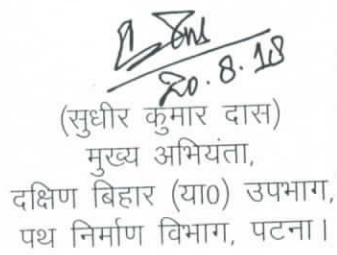 20.8.18
(सुधीर कुमार दास)
मुख्य अभियंता,
दक्षिण बिहार (या0) उपभाग,
पथ निर्माण विभाग, पटना।